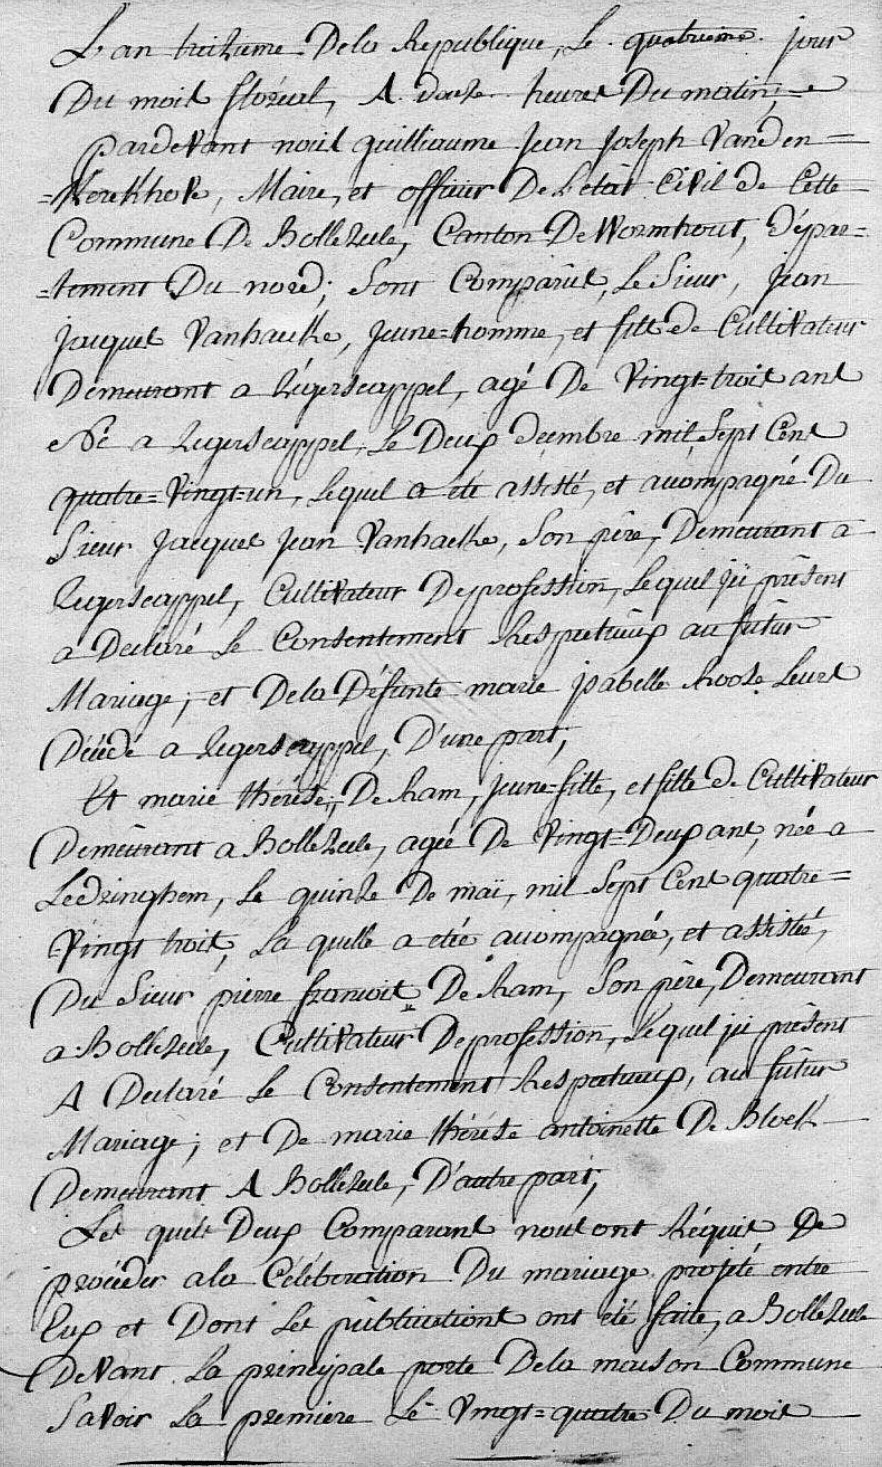 L'an treizieme De la Republique, Le quatrieme jour
Du mois floréal, A douze heures Du matin, =
pardevant nous guilliaume Jean Joseph Vanden=
=Kerckhove, Maire, et officier De L'etat Civil de Cette
Commune De Bollezeele, Canton De Wormhout, Dépar=
=tement Du nord; sont Comparus, Le Sieur, Jean
Jacques Vanhaecke, Jeune=homme, et fils de Cultivateur
Demeurant a Zégerscappel, agé De Vingt=trois ans
Né a Zegerscappel, Le Deux decembre mil Sept Cent
quatre=Vingt=un, Lequel a été assisté, et acompagné Du
Sieur Jacques Jean Vanhaecke, Son père, Demeurant a
Zegerscappel, Cultivateur De profession, Lequel ici présent
a Declaré Le Consentement Respectueux au futur
Mariage; et De la Défunte marie isabelle Rooze Leurs
Décédé a Zegerscappel, D'une part,
Et marie thérése, De Ram, jeune=fille, et fille de Cultivateur
Demeurant a Bollezeele, agée De Vingt=Deux ans, née a
Ledringhem, Le quinze De maï, mil Sept Cent quatre=
Vingt trois, La quelle a etée acompagnée, et assistée,
Du Sieur pierre francois De Ram, Son père, Demeurant
a Bollezeele, Cultivateur De profession, Lequel ici présent
A Declaré Le Consentement Respectueux, au futur
Mariage; et De marie thérése antoinette De Block
Demeurant A Bollezeele, D'autre part,
Les quels Deux Comparans nous ont Réquis De
procéder a la Célébration Du mariage projeté entre
Eux et Dont Les publications ont été faite, a Bollezeele
Devant La principale porte De la maison Commune
Savoir La premiere Le Vingt=quatre Du mois